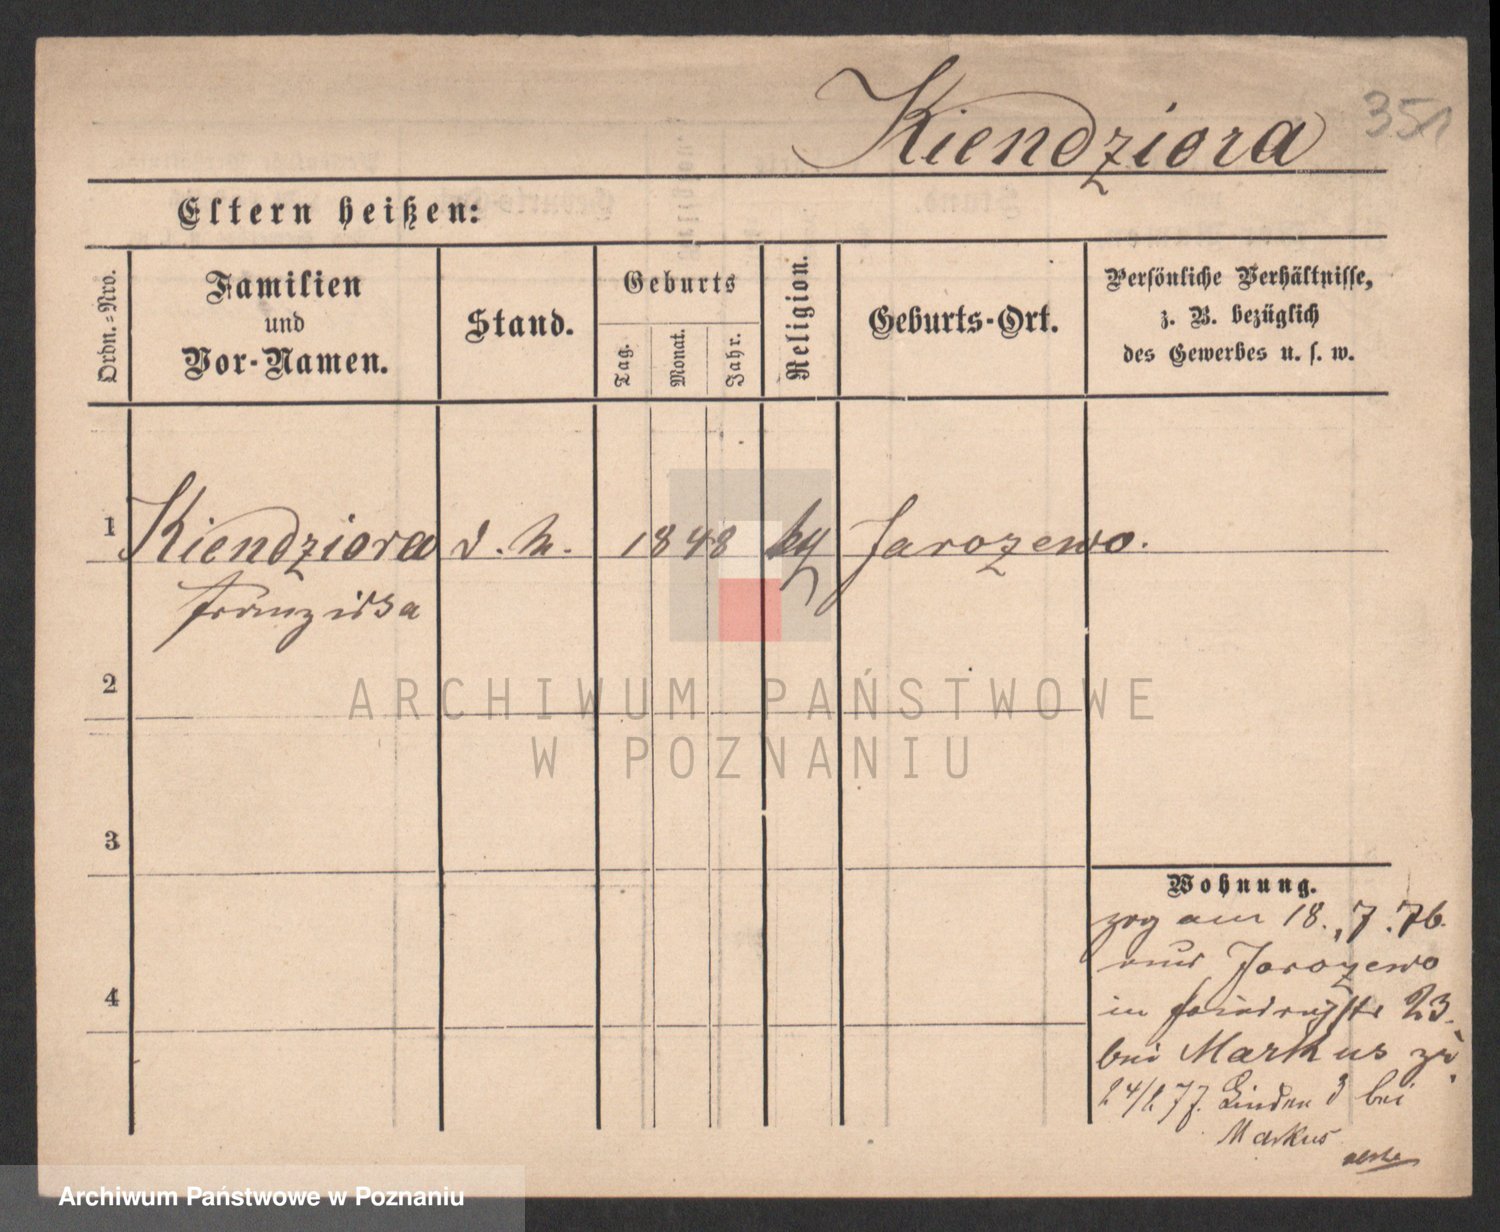 Kiendziora 351
Eltern heißen:
Ordn.-Nro.
Familien
und
Vor-Namen.
Stand.
Geburts
Tag.
Monat.
Jahr.
Religion.
Geburts-Ort.
Persönliche Verhältnisse,
z. B. bezüglich
des Gewerbes u. s. w.
1 Kiendziora d. M. 1848 kg Jarozewo.
Franziska
2
ARCHIWUM PAŃSTWOWE
W POZNANIU
3
4
Wohnung.
zog am 18. 7. 76.
aus Jarozewo
in Friedrichstr 23.
bei Markus zu.
24/2 77. Linden 3 bei
Markus
Archiwum Państwowe w Poznaniu